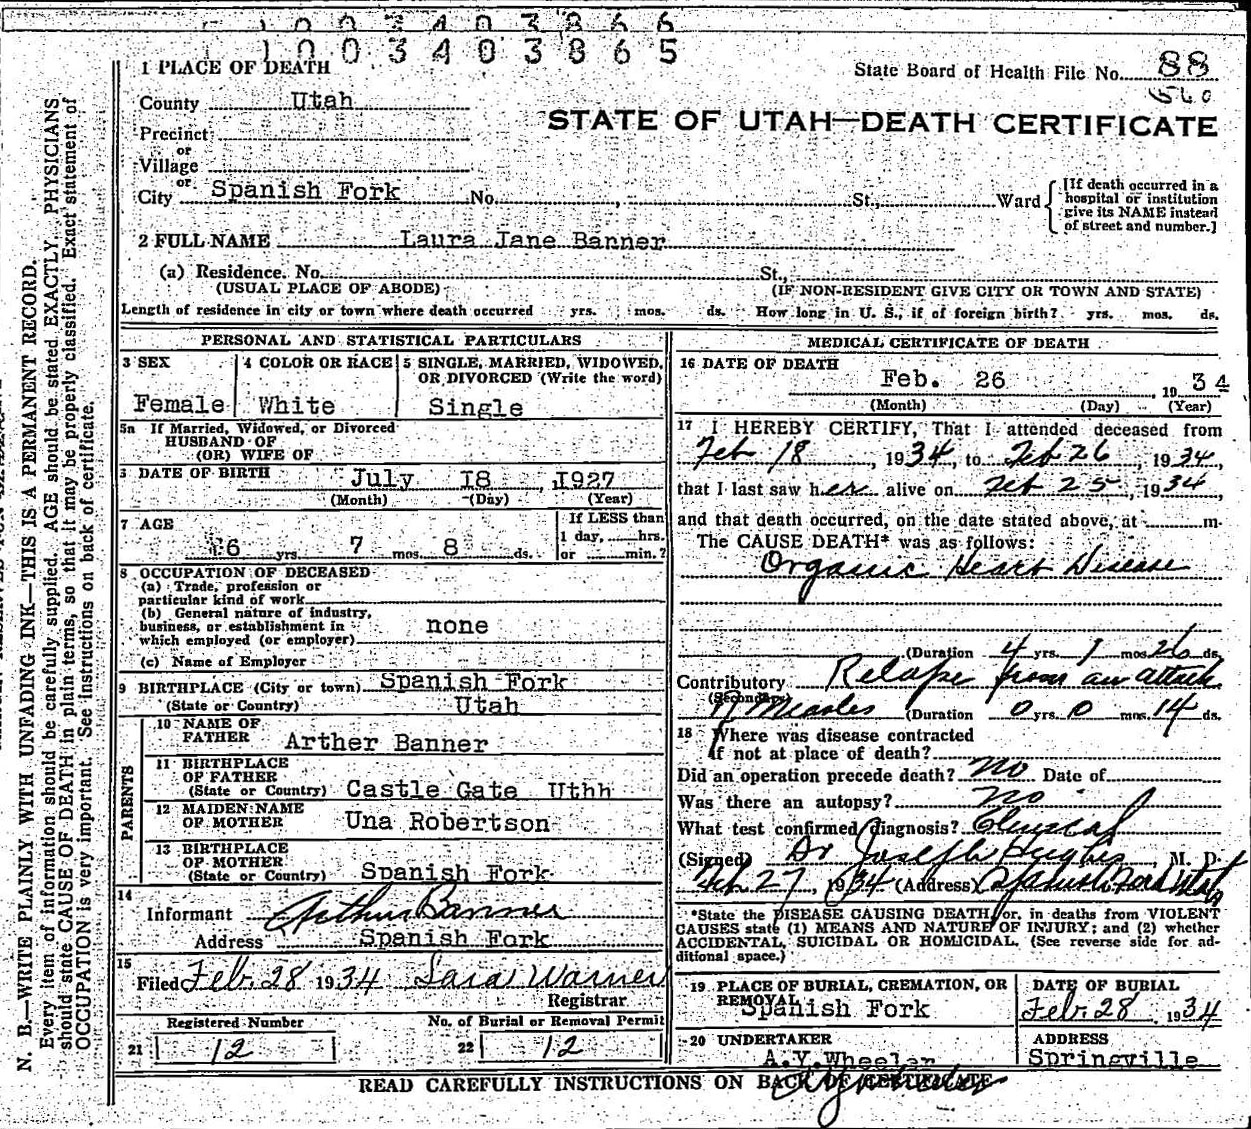 1003403866
1003403865
1 PLACE OF DEATH
State Board of Health File No. 88
560
County Utah
STATE OF UTAH—DEATH CERTIFICATE
Precinct
or
Village
or
City Spanish Fork No. , St., Ward
[If death occurred in a
hospital or institution
give its NAME instead
of street and number.]
2 FULL NAME Laura Jane Banner
(a) Residence. No. St.,
(USUAL PLACE OF ABODE) (IF NON-RESIDENT GIVE CITY OR TOWN AND STATE)
Length of residence in city or town where death occurred yrs. mos. ds. How long in U. S., if of foreign birth? yrs. mos. ds.
PERSONAL AND STATISTICAL PARTICULARS
3 SEX
Female
4 COLOR OR RACE
White
5 SINGLE, MARRIED, WIDOWED,
OR DIVORCED (Write the word)
Single
5a If Married, Widowed, or Divorced
HUSBAND OF
(OR) WIFE OF
DATE OF BIRTH July I8 , 1927
(Month) (Day) (Year)
7 AGE
6 yrs. 7 mos. 8 ds.
If LESS than
1 day, hrs.
or min.?
8 OCCUPATION OF DECEASED
(a) Trade, profession or
particular kind of work
(b) General nature of industry,
business, or establishment in
which employed (or employer) none
(c) Name of Employer
9 BIRTHPLACE (City or town) Spanish Fork
(State or Country) Utah
PARENTS
10 NAME OF
FATHER Arther Banner
11 BIRTHPLACE
OF FATHER
(State or Country) Castle Gate Uthh
12 MAIDEN NAME
OF MOTHER Una Robertson
13 BIRTHPLACE
OF MOTHER
(State or Country) Spanish Fork
14
Informant Arthur Banner
Address Spanish Fork
15
Filed Feb. 28 1934 Sara Warner
Registrar
Registered Number
21 12
No. of Burial or Removal Permit
22 12
MEDICAL CERTIFICATE OF DEATH
16 DATE OF DEATH
Feb. 26 1934
(Month) (Day) (Year)
17 I HEREBY CERTIFY, That I attended deceased from
Feb 18, 1934, to Feb 26, 1934,
that I last saw her alive on Feb 25, 1934,
and that death occurred, on the date stated above, at m.
The CAUSE DEATH* was as follows:
Organic Heart Disease
(Duration 4 yrs. 1 mos. 26 ds.
Contributory Relapse from an attack
(Secondary)
of Measles (Duration 0 yrs. 0 mos. 14 ds.
18 Where was disease contracted
if not at place of death?
Did an operation precede death? no Date of
Was there an autopsy? no
What test confirmed diagnosis? Clinical
(Signed) Dr Joseph Hughes, M. D.
Feb 27, 1934 (Address) Spanish Fork Utah
*State the DISEASE CAUSING DEATH, or, in deaths from VIOLENT
CAUSES state (1) MEANS AND NATURE OF INJURY; and (2) whether
ACCIDENTAL, SUICIDAL OR HOMICIDAL. (See reverse side for ad-
ditional space.)
19 PLACE OF BURIAL, CREMATION, OR
REMOVAL
Spanish Fork
DATE OF BURIAL
Feb. 28, 1934
20 UNDERTAKER
A.Y. Wheeler
ADDRESS
Springville
READ CAREFULLY INSTRUCTIONS ON BACK OF CERTIFICATE
N. B.—WRITE PLAINLY WITH UNFADING INK—THIS IS A PERMANENT RECORD.
Every item of information should be carefully supplied. AGE should be stated EXACTLY. PHYSICIANS
should state CAUSE OF DEATH in plain terms, so that it may be properly classified. Exact statement of
OCCUPATION is very important. See instructions on back of certificate.